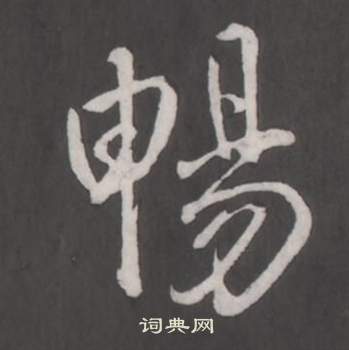 暢
词典网